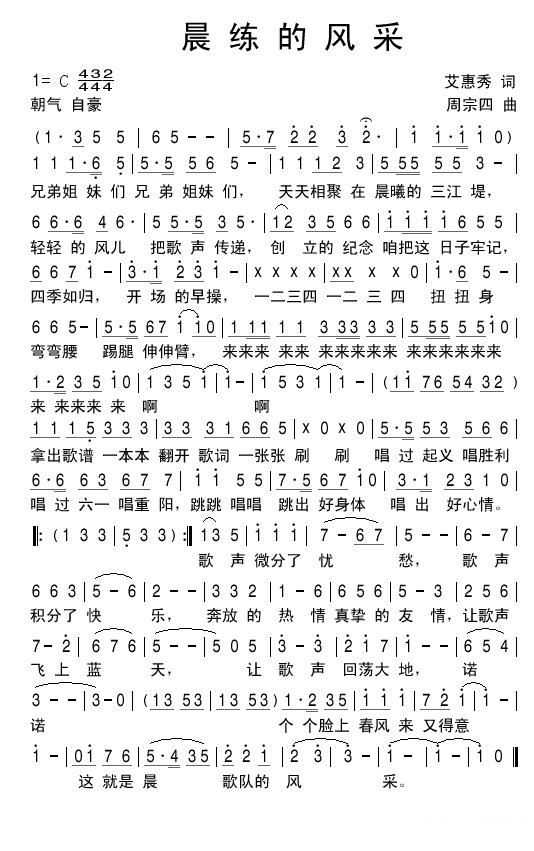 晨练的风采
1= C 432 艾惠秀 词
444
朝气 自豪 周宗四 曲
(1· 3 5 5 | 6 5 - - | 5·7 2 2 3 2· | 1 1·1 1 0)
1 1 1·6 | 5·5 5 6 5 - | 1 1 1 2 3 | 5 5 5 5 5 3 - |
兄弟姐 妹 们 兄 弟 姐妹 们， 天天相聚 在 晨曦的 三江 堤，
6 6·6 4 6· | 5 5·5 3 5· | 12 3 5 6 6 | 1 1 1 1 6 5 5 |
轻轻 的 风儿 把歌 声 传递， 创 立的 纪念 咱把这 日子牢记，
6 6 7 1 - | 3·1 2 3 1 - | X X X X | X X X X 0 | 1·6 5 - |
四季如归， 开 场 的早操， 一二三四 一二 三 四 扭 扭 身
6 6 5 - | 5·5 6 7 1 1 0 | 1 1 1 1 1 3 3 3 3 3 | 5 5 5 5 5 1 0 |
弯弯腰 踢腿 伸伸臂， 来来来 来来 来来来来来 来来来来来来
1·2 3 5 1 0 | 1 3 5 1 | 1 - | 1 5 3 1 | 1 - | (1 1 7 6 5 4 3 2)
来 来来来 来 啊 啊
1 1 1 5 3 3 3 | 3 3 3 1 6 6 5 | X 0 X 0 | 5·5 5 3 5 6 6 |
拿出歌谱 一本本 翻开 歌词 一张张 刷 刷 唱 过 起义 唱胜利
6·6 6 3 6 7 7 | 1 1 5 5 | 7·5 6 7 1 0 | 3·1 2 3 1 0 |
唱 过 六一 唱重 阳，跳跳 唱唱 跳出 好身体 唱 出 好心情。
‖: (1 3 3 | 5 3 3) :‖ 1 3 5 | 1 1 1 | 7 - 6 7 | 5 - - | 6 - 7 |
歌 声 微分了 忧 愁， 歌 声
6 6 3 | 5 - 6 | 2 - - | 3 3 2 | 1 - 6 | 6 5 6 | 5 - - | 5 1 2 |
积分了 快 乐， 奔放 的 热 情 真挚 的 友 情，让歌声
7 - 2 | 6 7 6 | 5 - - | 5 0 5 | 3 - 3 | 2 1 7 | 1 - - | 6 5 4 |
飞 上 蓝 天， 让 歌 声 回荡大 地， 诺
3 - - | 3 - 0 | (13 53 | 13 53) | 1·2 3 5 | 1 1 1 | 7 2 1 | 1 - |
诺 个 个脸上 春风 来 又得意
1 - | 01 7 6 | 5·4 3 5 | 2 2 1 | 2 - | 2 - | 1 - | 1 - | 1 0 ‖
这 就是 晨 歌队的 风 采。